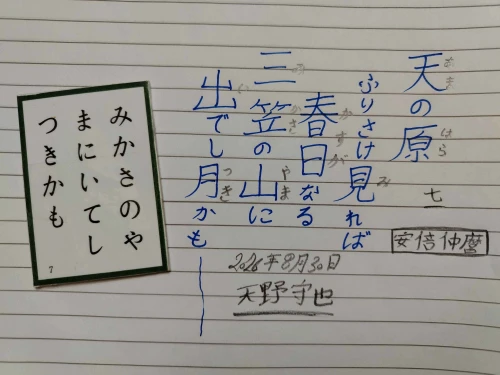 天の原
ふりさけ見れば
春日なる
三笠の山に
出でし月かも
あま
はら
み
かすが
み
かさ
やま
い
つき
七
安倍仲麿
2026年8月30日
天野守也
みかさのや
まにいてし
つきかも
7